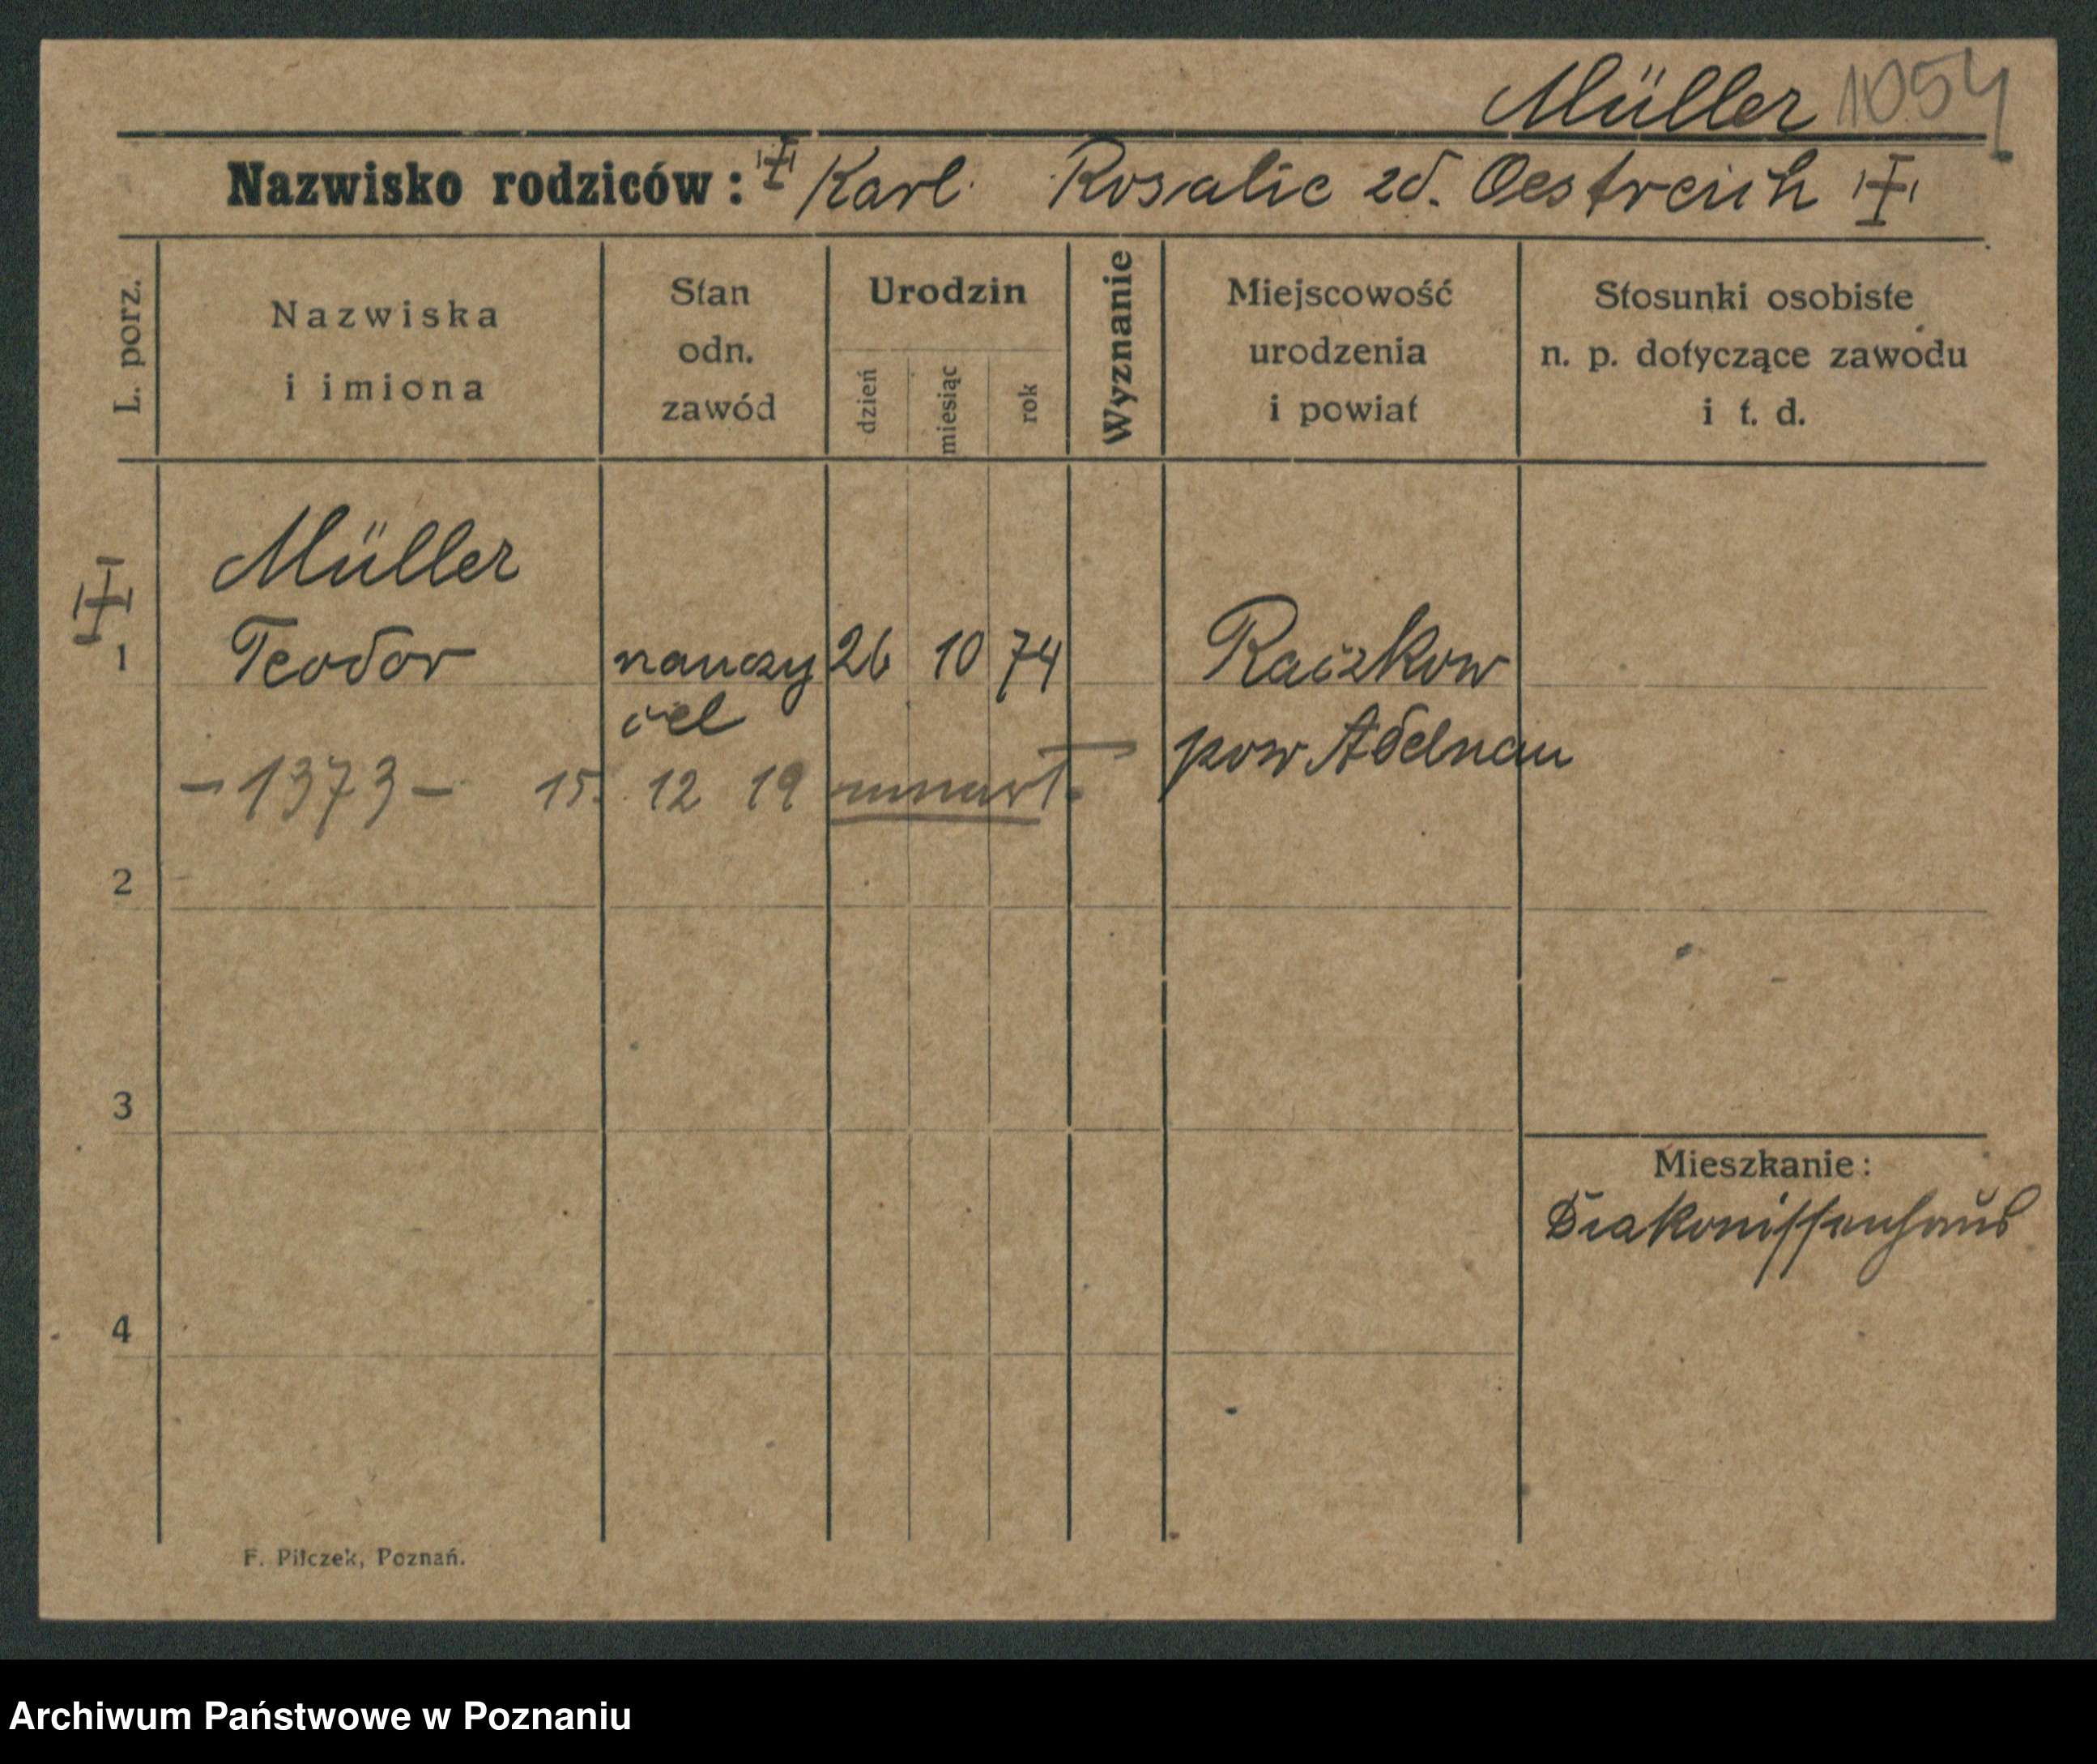 Müller 1054
Nazwisko rodziców: Karl Rosalie zd. Oestreich
L. porz.
Nazwiska
i imiona
Stan
odn.
zawód
Urodzin
dzień
miesiąc
rok
Wyznanie
Miejscowość
urodzenia
i powiat
Stosunki osobiste
n. p. dotyczące zawodu
i t. d.
Müller
1 Teodor nauczy 26 10 74 Raczkow
ciel pow Adelnau
- 1373 - 15. 12 19 umarł.
2
3
Mieszkanie:
Diakonissenhaus
4
F. Pilczek, Poznań.
Archiwum Państwowe w Poznaniu